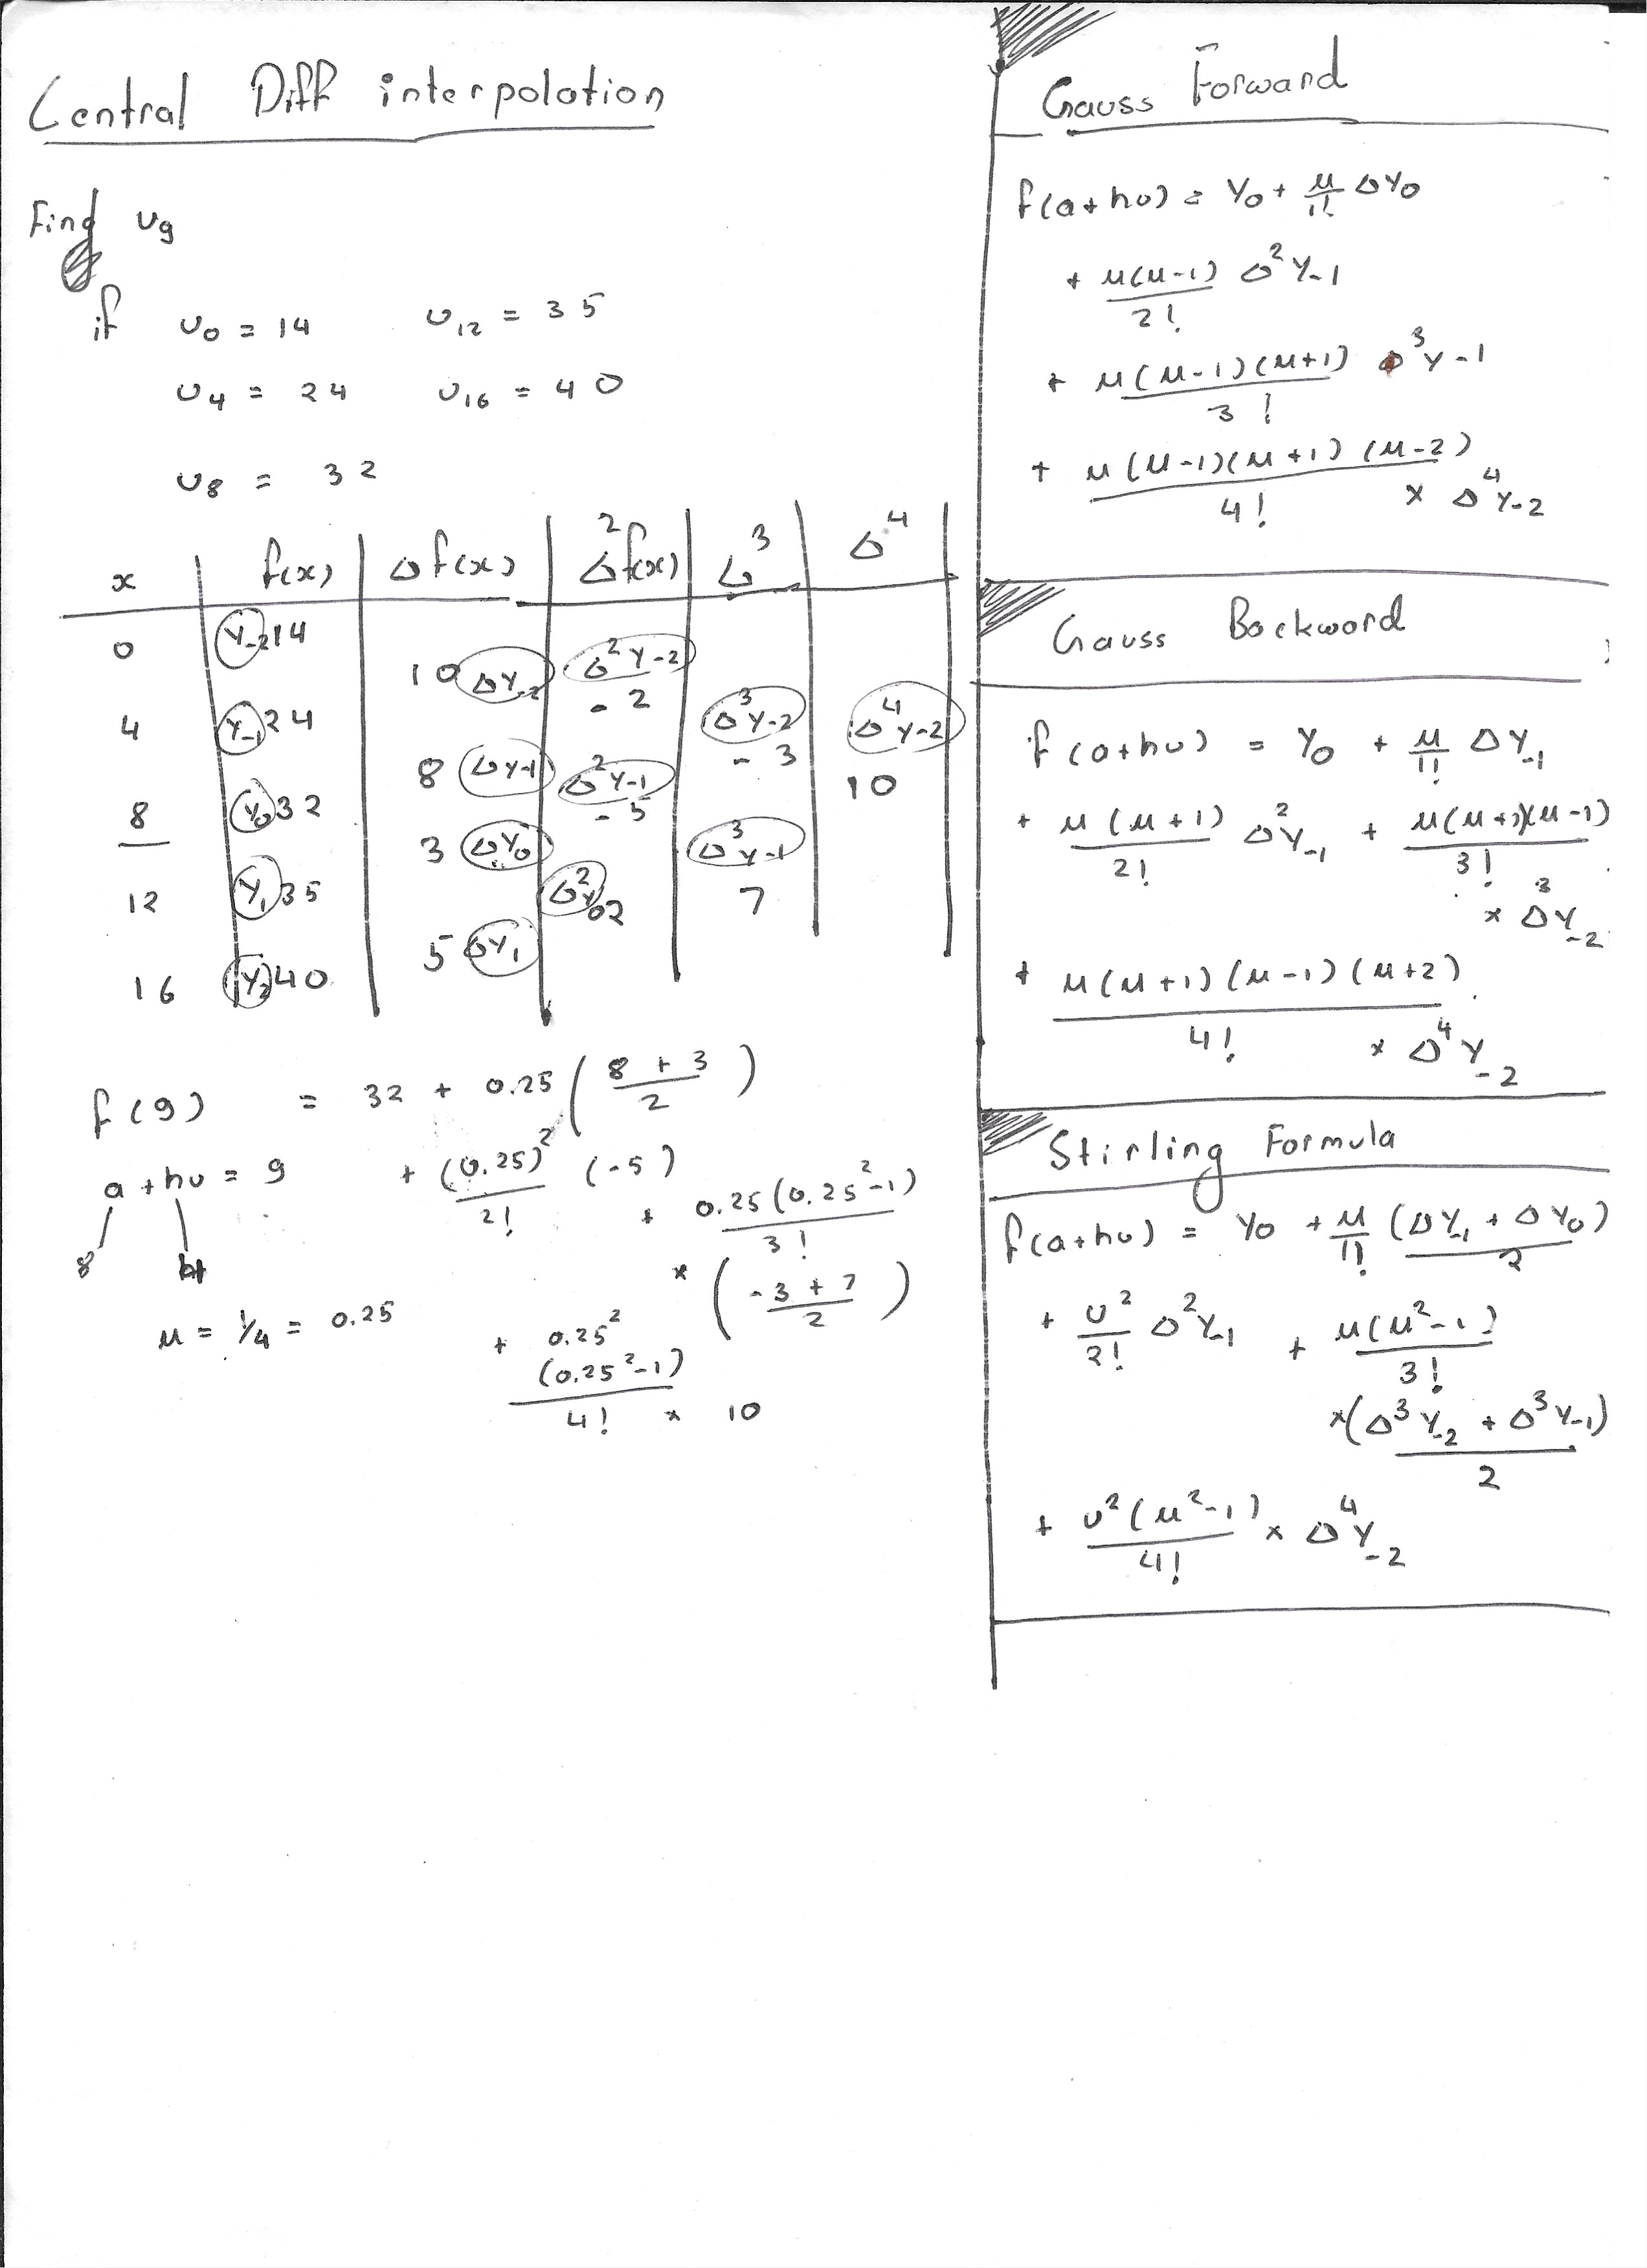 Central Diff interpolation
Find u₉
if u₀ = 14 u₁₂ = 35
u₄ = 24 u₁₆ = 40
u₈ = 32
x f(x) Δf(x) Δ²f(x) Δ³ Δ⁴
0 Y₋₂ 14
10 ΔY₋₂ Δ²Y₋₂ -2
4 Y₋₁ 24 Δ³Y₋₂ -3 Δ⁴Y₋₂ 10
8 ΔY₋₁ Δ²Y₋₁ -5
8 Y₀ 32
3 ΔY₀ Δ³Y₋₁ 7
12 Y₁ 35 Δ²Y₀ 2
5 ΔY₁
16 Y₂ 40
f(9) = 32 + 0.25 ( (8 + 3)/2 )
a + hu = 9 + (0.25)²/2! (-5)
+ 0.25(0.25²-1)/3!
8
× ( (-3 + 7)/2 )
μ = 1/4 = 0.25
+ 0.25²
(0.25²-1)/4! × 10
Gauss Forward
f(a+hu) = Y₀ + μ/1! ΔY₀
+ μ(μ-1)/2! Δ²Y₋₁
+ μ(μ-1)(μ+1)/3! Δ³Y₋₁
+ μ(μ-1)(μ+1)(μ-2)/4!
× Δ⁴Y₋₂
Gauss Backward
f(a+hu) = Y₀ + μ/1! ΔY₋₁
+ μ(μ+1)/2! Δ²Y₋₁ + μ(μ+1)(μ-1)/3!
× Δ³Y₋₂
+ μ(μ+1)(μ-1)(μ+2)/4!
× Δ⁴Y₋₂
Stirling Formula
f(a+hu) = Y₀ + μ/1! (ΔY₋₁ + ΔY₀)/2
+ u²/2! Δ²Y₋₁ + μ(μ²-1)/3!
×(Δ³Y₋₂ + Δ³Y₋₁)/2
+ u²(μ²-1)/4! × Δ⁴Y₋₂